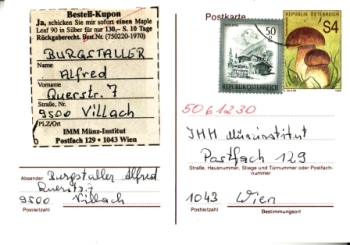 Bestell-Kupon
Ja, schicken Sie mir sofort einen Maple
Leaf 90 in Silber für nur 130,- S. 10 Tage
Rückgaberecht. Best.Nr. (750220-1970)
BURGSTALLER
Name
Alfred
Vorname
Querstr. 7
Straße, Nr.
9500 Villach
PLZ/Ort
IMM Münz-Institut
Postfach 129 • 1043 Wien
Absender
Burgstaller Alfred
Querstr. 7
9500 Villach
Postleitzahl
Postkarte
50
REPUBLIK ÖSTERREICH
S4
5061230
IMM Münzinstitut
Postfach 129
Straße, Hausnummer, Stiege und Türnummer oder Postfach-
nummer
1043 Wien
Postleitzahl
Bestimmungsort